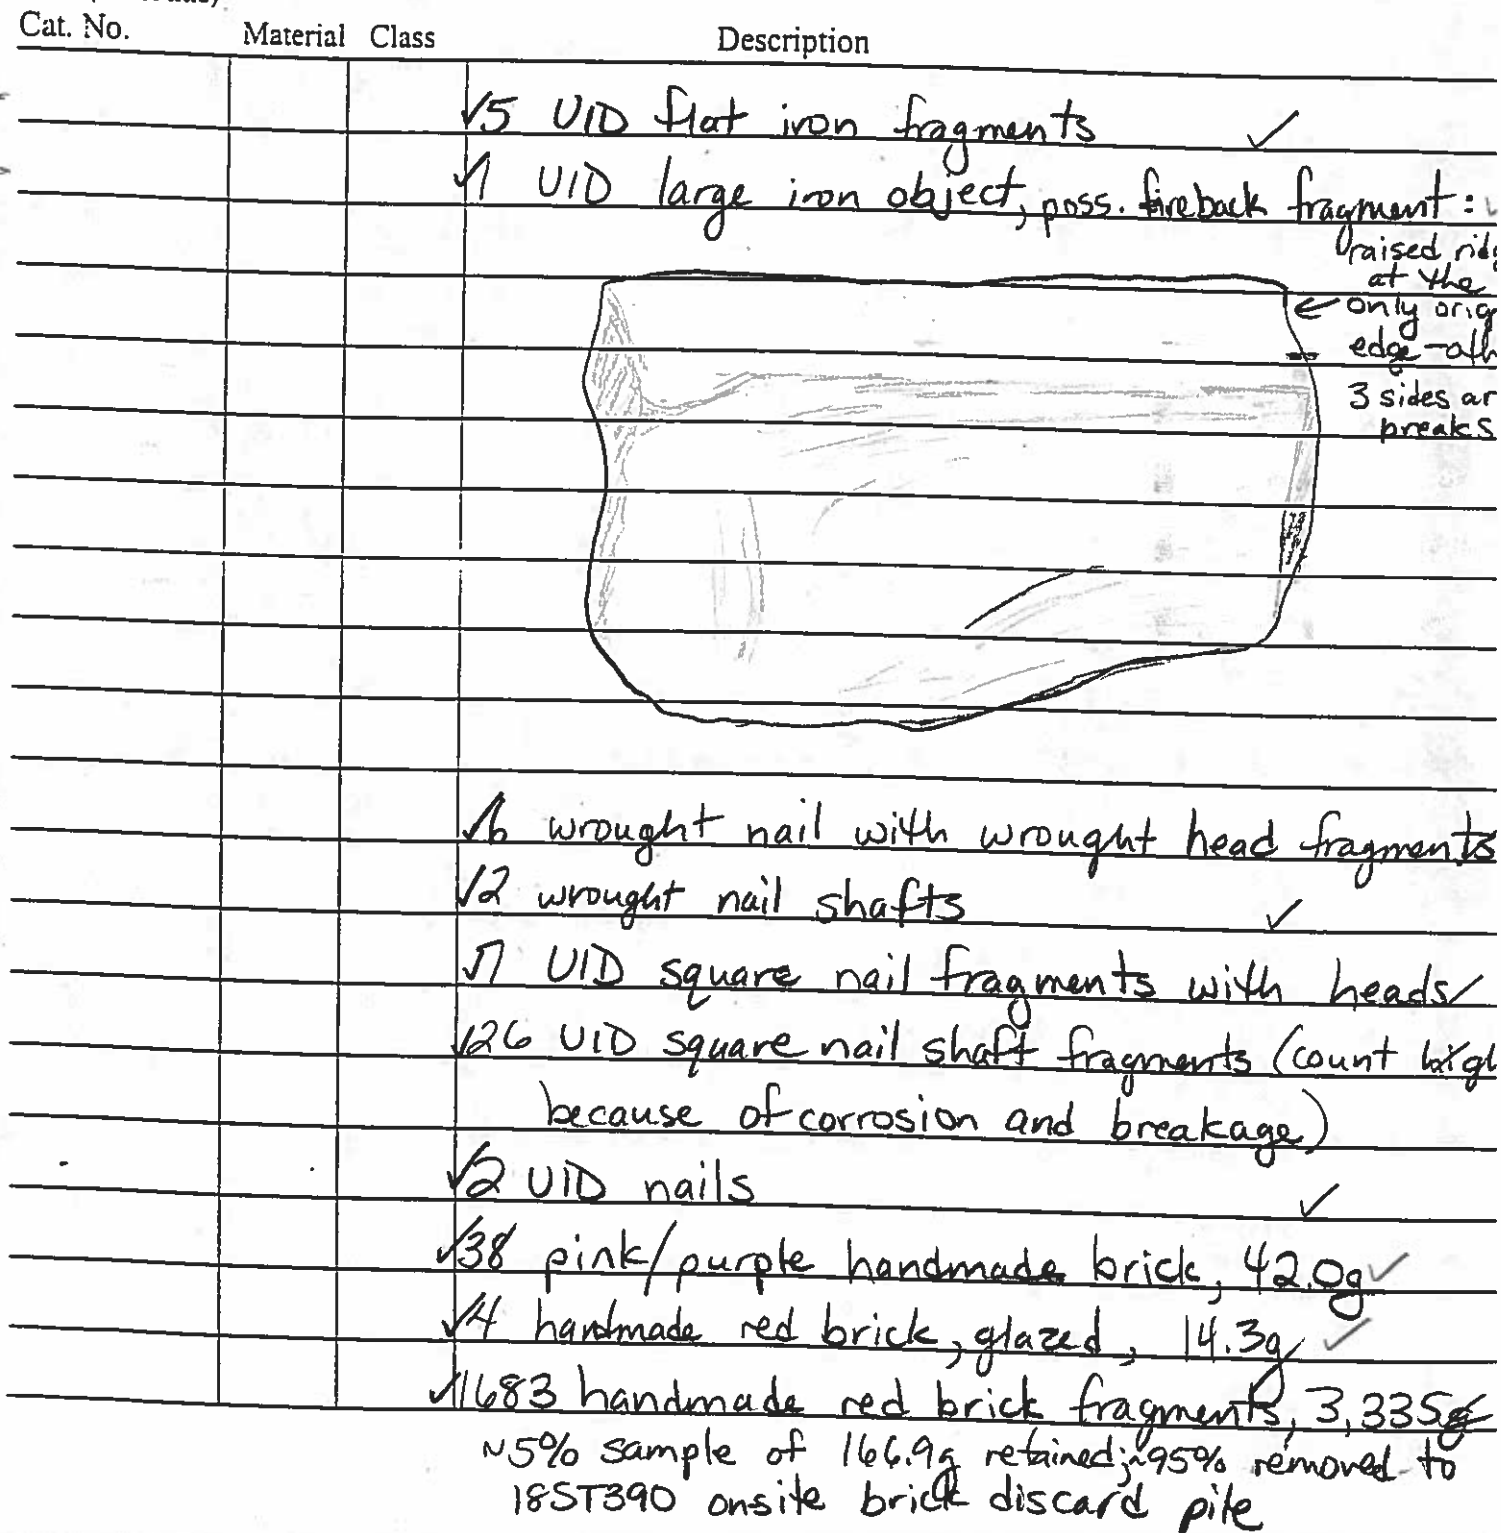 Cat. No. Material Class Description
✓5 UID flat iron fragments ✓
✓1 UID large iron object, poss. fireback fragment:
raised
at the
← only
edge
3 sides
breaks
✓6 wrought nail with wrought head fragments
✓2 wrought nail shafts ✓
✓7 UID square nail fragments with heads ✓
✓26 UID square nail shaft fragments (count
because of corrosion and breakage)
✓2 UID nails ✓
✓38 pink/purple handmade brick, 42.0g ✓
✓4 handmade red brick, glazed, 14.3g ✓
✓1683 handmade red brick fragments, 3,335g
~5% sample of 166.9g retained; ~95% removed to
18ST390 onsite brick discard pile